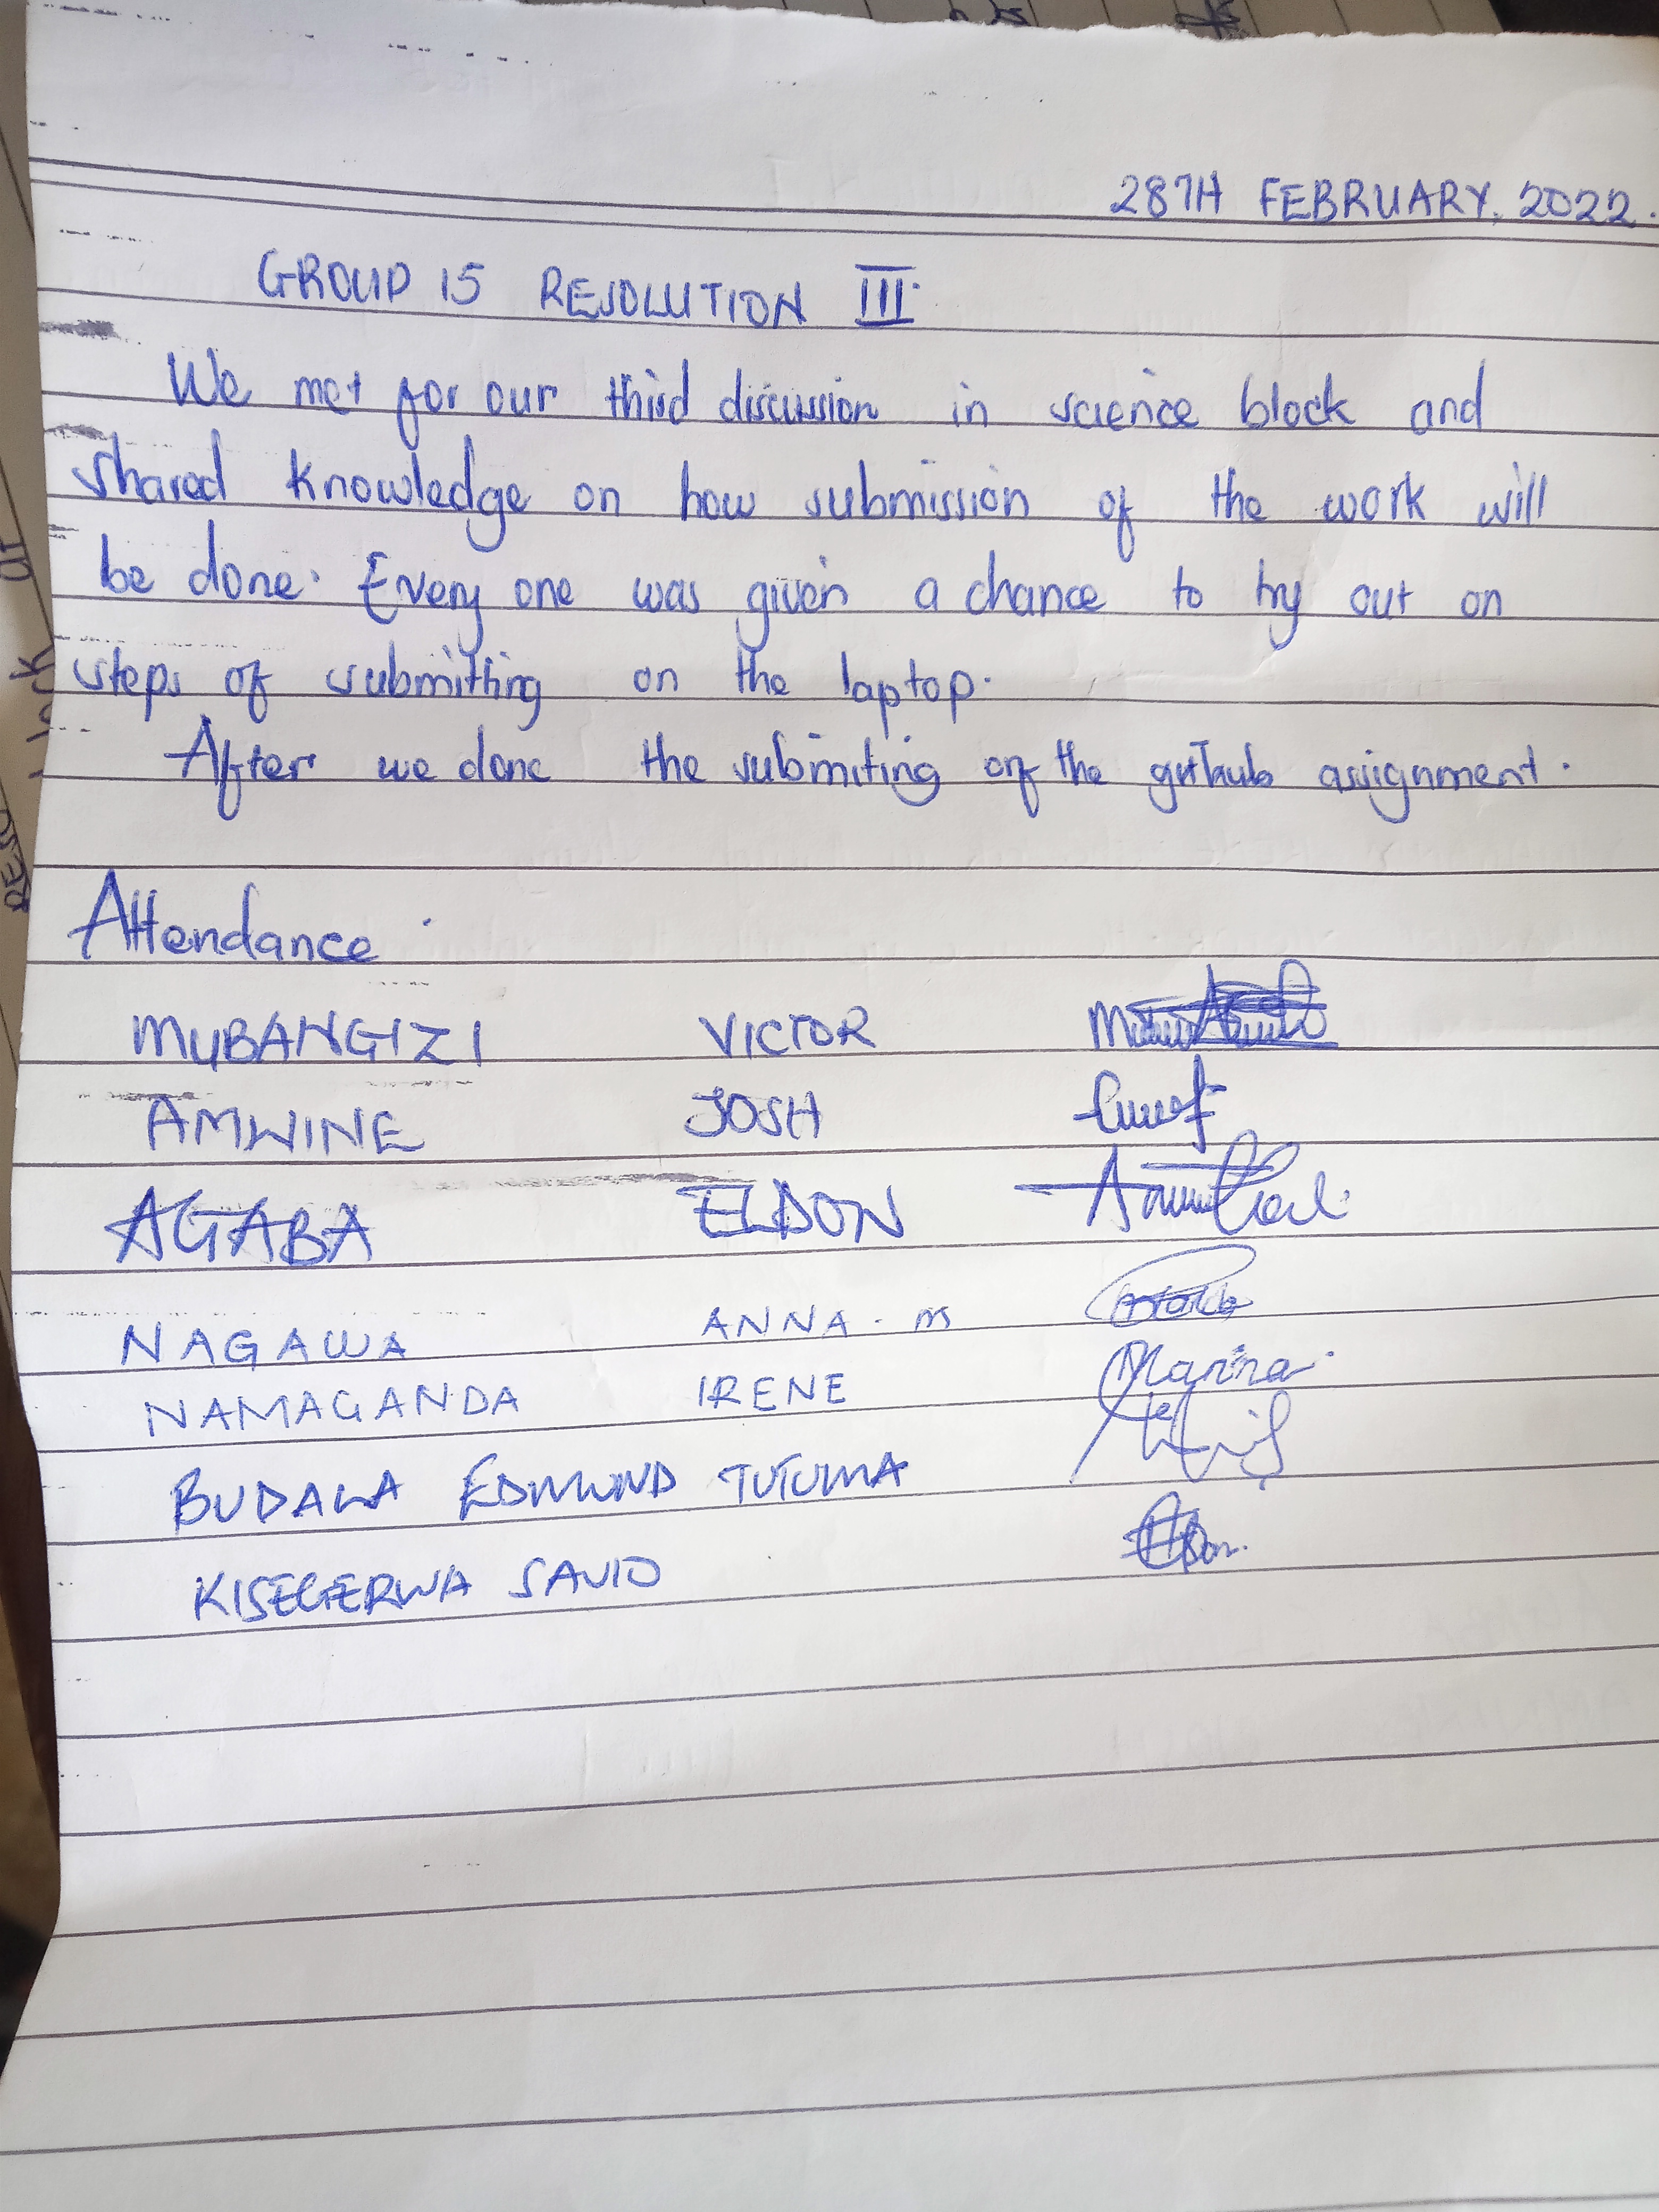 28TH FEBRUARY, 2022.
GROUP 15 RESOLUTION III.
We met for our third discussion in science block and
shared knowledge on how submission of the work will
be done. Every one was given a chance to try out on
steps of submitting on the laptop.
After we done the submiting of the github assignment.
Attendance.
MUBANGIZI VICTOR
AMWINE JOSH
AGABA ELDON
NAGAWA ANNA. M
NAMAGANDA IRENE
BUDALA EDMUND TUTUMA
KISEGERWA SAVIO